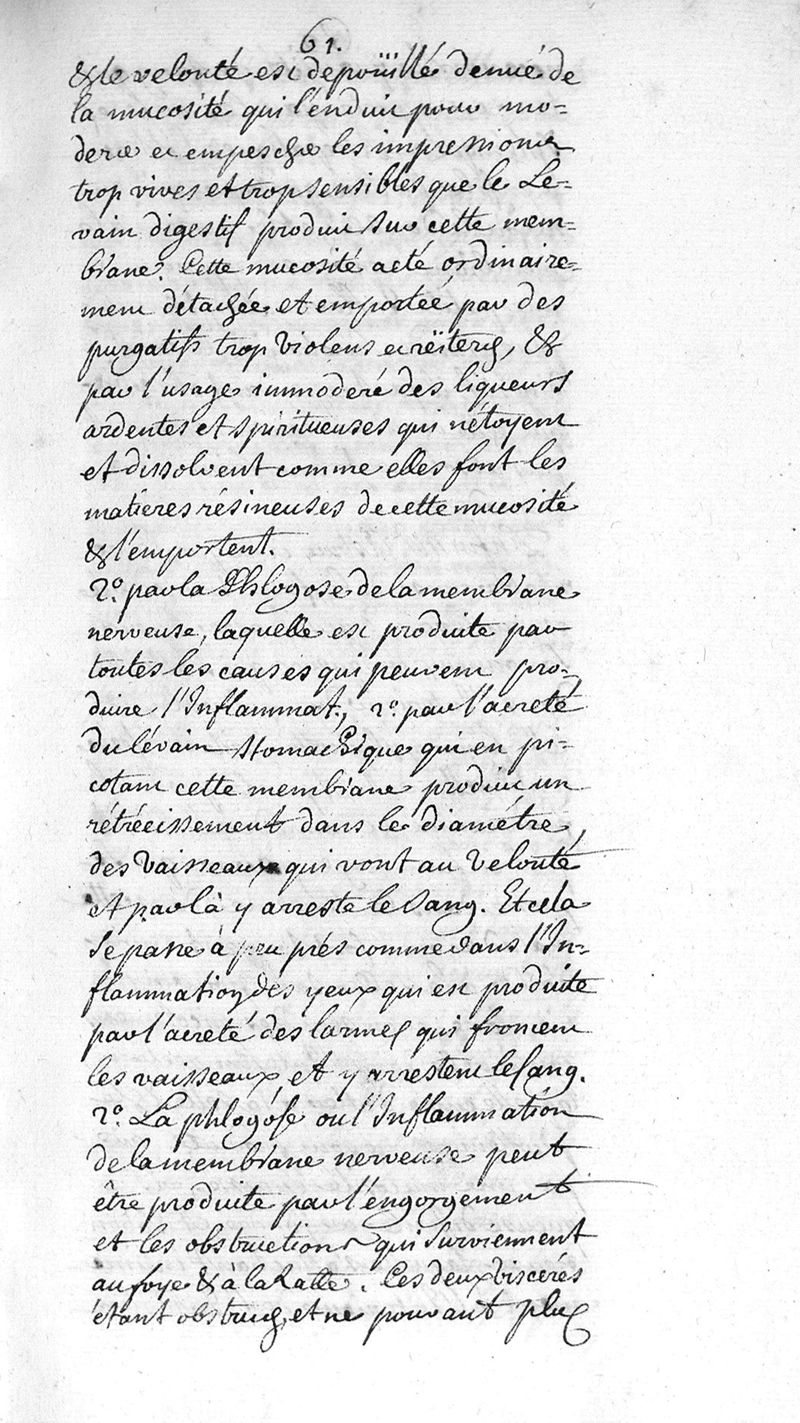 61.
& le velouté est depoüillé denué de
la mucosité qui l'enduit pour mo-
derer et empescher les impressions
trop vives et trop sensibles que le Le-
vain digestif produit sur cette mem-
brane. Cette mucosité a eté ordinaire-
ment détachée et emportée par des
purgatifs trop violens et reïterés, &
par l'usage immoderé des liqueurs
ardentes et spiritueuses qui nétoyent
et dissolvent comme elles font les
matieres résineuses de cette mucosité
& l'emportent.
2.º par la Phlogose de la membrane
nerveuse, laquelle est produite par
toutes les causes qui peuvent pro-
duire l'Inflammat., 2.º par l'acreté
du lévain stomachique qui en pi-
cotant cette membrane produit un
rétrécissement dans le diamétre,
des vaisseaux qui vont au velouté
et par là y arreste le sang. Et cela
se passe à peu prés comme dans l'In-
flammation des yeux qui est produite
par l'acreté des larmes qui froncent
les vaisseaux et y arrestent le sang.
2.º La phlogose ou l'Inflammation
de la membrane nerveuse peut
être produite par l'engorgement
et les obstructions qui surviennent
au foye & à la Ratte. Ces deux viscerés
étant obstrués, et ne pouvant plus